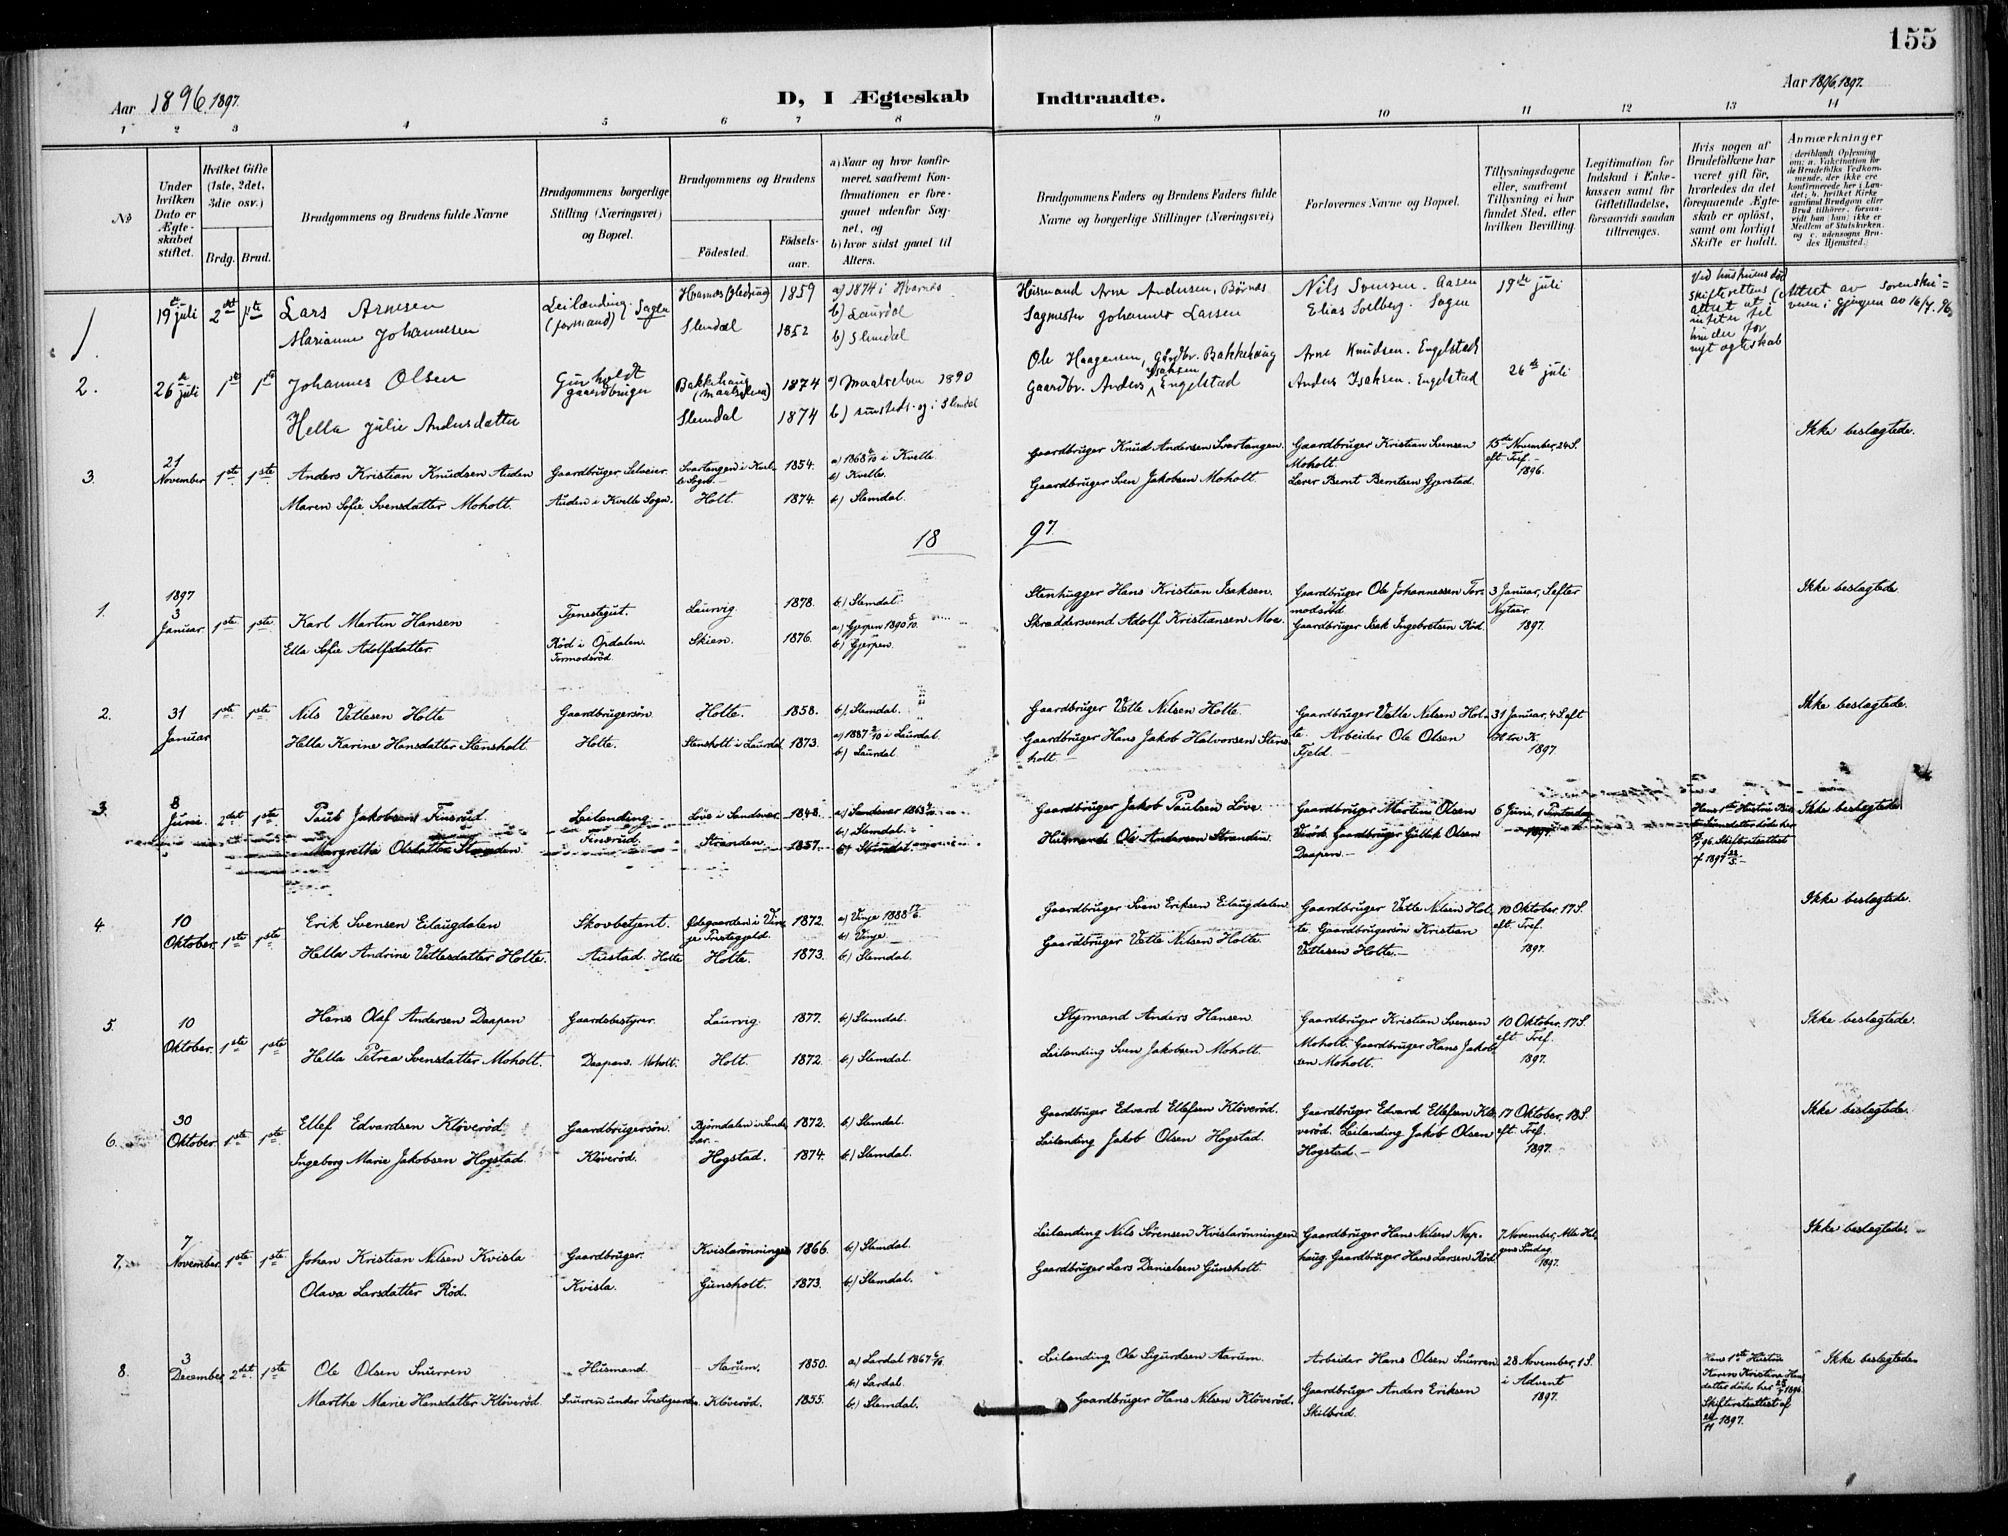 155
Aar 1896. 1897.
D, I Ægteskab Indtraadte.
Aar 1896. 1897.
1 2 3 4 5 6 7 8 9 10 11 12 13 14
No
Under hvilken Dato er Ægteskabet stiftet.
Hvilket Gifte (1ste, 2det, 3die osv.)
Brdg. Brud.
Brudgommens og Brudens fulde Navne
Brudgommens borgerlige Stilling (Næringsvei) og Bopæl.
Brudgommens og Brudens
Fødested. Fødsels-aar.
a) Naar og hvor konfirmeret, saafremt Konfirmationen er foregaaet udenfor Sognet, og
b) hvor sidst gaaet til Alters.
Brudgommens Faders og Brudens Faders fulde Navne og borgerlige Stillinger (Næringsvei)
Forlovernes Navne og Bopæl.
Tillysningsdagene eller, saafremt Tillysning ei har fundet Sted, efter hvilken Bevilling.
Legitimation for Indskud i Enkekassen samt for Giftetilladelse, forsaavidt saadan tiltrænges.
Hvis nogen af Brudefolkene har været gift før, hvorledes da det foregaaende Ægteskab er opløst, samt om lovligt Skifte er holdt.
Anmærkninger
(deriblandt Oplysning om: a. Vakcination for de Brudefolks Vedkommende, der ikke ere konfirmerede her i Landet; b. hvilket Kirkesamfund Brudgom eller Brud tilhører, forsaavidt han (hun) ikke er Medlem af Statskirken, og c. udensogns Brudes Hjemsted.)
1. 19de juli 2det 1ste Lars Arnesen Leilænding (formand) Sagen Hvarnes 1859 a) 1874 i Hvarnes b) Laurdal Husmand Arne Andersen, Børnes Nils Svensen. Aasen 19de juli
Marianne Johannesen Slemdal 1852 b) Slemdal Sagmester Johannes Larsen Elias Sollberg. Sagen
Ved hustruens død
nyt egteskab
2. 26de juli 1ste 1ste Johannes Olsen Gurholdt gaardbruger Bakkehaug (Maalselven) 1874 a) Maalselven 1890 Ole Haagensen, Gårdbr. Bakkehaug Arne Knudsen. Engelstad 26de juli
Hella Julie Andersdatter Slemdal 1874 b) sunsteds og i Slemdal Gaardbr. Anders Isaksen Engelstad Anders Isaksen. Engelstad
3. 21 November 1ste 1ste Anders Kristian Knudsen Auden Gaardbruger Selveier. Svartangen i Kvelle Sogn. 1854. a) 1868 4/10 i Kvelle b) Kvelle. Gaardbruger Knud Andersen Svartangen. Gaardbruger Kristian Svensen Moholt. 15de November, 24 S. eft. Tref. 1896. Ikke beslægtede.
Maren Sofie Svensdatter Moholt. Auden i Kvelle Sogn. Holt 1874. b) Slemdal. Gaardbruger Sven Jakobsen Moholt. Lærer Bernt Berntsen Gjerstad.
18 97.
1. 1897 3 Januar 1ste 1ste Karl Martin Hansen Tjenestegut. Laurvig. 1878. b) Slemdal. Stenhugger Hans Kristian Isaksen. Gaardbruger Ole Johannessen Tormodsröd 3 Januar, S. efter Nytaar 1897. Ikke beslægtede.
Ella Sofie Adolfsdatter. Röd i Opdalen. Tormodsröd. Skien. 1876. a) Gjerpen 1890 5/10. b) Gjerpen. Skræddersvend Adolf Kristiansen Moe. Gaardbruger Isak Ingebretsen Röd.
2. 31 Januar 1ste 1ste Nils Vettesen Holte Gaardbrugersön. Holte. 1858. b) Slemdal. Gaardbruger Vette Nilsen Holte. Gaardbruger Vette Nilsen Holte. 31 Januar, 4 S. eft. H. tre K. 1897. Ikke beslægtede.
Hella Karine Hansdatter Stensholt Holte. Stensholt i Laurdal 1873. a) 1887 2/10 i Laurdal b) Laurdal. Gaardbruger Hans Jakob Halvorsen Stensholt. Arbeider Ole Olsen Fjeld.
3. 8 Juni. 2det 1ste Paul Jakobsen Finsrud. Leilending Löve i Sandeherr. 1848. a) Sandeherr 1863 4/10. b) Slemdal. Gaardbruger Jakob Paulsen Löve. Gaardbruger Martin Olsen 6 Juni, 1 Pintsedag 1897. Ikke beslægtede.
Margrethe Olsdatter Stranden Finsrud. Stranden. 1857. b) Slemdal. Husmand Ole Andersen Stranden. Gaardbruger Gullik Olsen Daapen.
4 10 Oktober. 1ste 1ste Erik Svensen Eilaugdalen Skovbetjent. Ödegaarden i Vinje Prestegjeld. 1872. a) Vinje 1888 17/6. b) Vinje Gaardbruger Sven Eriksen Eilaugdalen. Gaardbruger Vette Nilsen Holte. 10 Oktober, 17 S. eft. Tref. 1897. Ikke beslægtede.
Hella Andrine Vettesdatter Holte. Austad. Holte Holte. 1873. b) Slemdal. Gaardbruger Vette Nilsen Holte. Gaardbrugersön Kristian Vettesen Holte.
5. 10 Oktober. 1ste 1ste Hans Olaf Andersen Daapan Gaardsbestyrer. Laurvig. 1877. b) Slemdal. Styrmand Anders Hansen Gaardbruger Kristian Svensen Moholt. 10 Oktober, 17 S. eft. Tref. 1897. Ikke beslægtede.
Hella Petrea Svensdatter Moholt. Daapan. Moholt. Holt. 1872. b) Slemdal. Leilending Sven Jakobsen Moholt. Gaardbruger Hans Jakobsen Moholt.
6. 30 Oktober 1ste 1ste Ellef Edvardsen Klöveröd. Gaardbrugersön. Bjørndalen i Sandeherr. 1872. b) Slemdal. Gaardbruger Edvard Ellefsen Klöveröd. Gaardbruger Edvard Ellefsen Klöveröd. 17 Oktober, 18 S. eft. Tref. 1897. Ikke beslægtede.
Ingeborg Marie Jakobsen Hogstad. Klöveröd. Hogstad. 1874. b) Slemdal. Leilending Jakob Olsen Hogstad. Leilending Jakob Olsen Hogstad.
7. 7 November. 1ste 1ste Johan Kristian Nilsen Kvisla Gaardbruger. Kvislarönningen 1866. b) Slemdal. Leilending Nils Sörensen Kvislarönningen. Gaardbruger Hans Nilsen Naphaug. 7 November, Alle Helgens Söndag 1897. Ikke beslægtede.
Olava Larsdatter Röd. Kvisla. Gunsholt. 1873. b) Slemdal. Gaardbruger Lars Danielsen Gunsholt. Gaardbruger Hans Larsen Röd.
8. 3 December 2det 1ste Ole Olsen Snurren Husmand. Aarum. 1850. a) Lardal 1867 6/10. b) Lardal. Leilending Ole Sigurdsen Aarum. Arbeider Hans Olsen Snurren 28 November, 1 S. i Advent 1897. Ikke beslægtede
Marthe Marie Hansdatter Klöveröd. Snurren under Prestegaarden. Klöveröd. 1855. b) Slemdal. Gaardbruger Hans Nilsen Klöveröd. Gaardbruger Anders Eriksen Skilbred.
Hans 1ste Hustru Karen Kristine Hansdatter döde her 1896. Skifteretsattest af 26/11 1897.